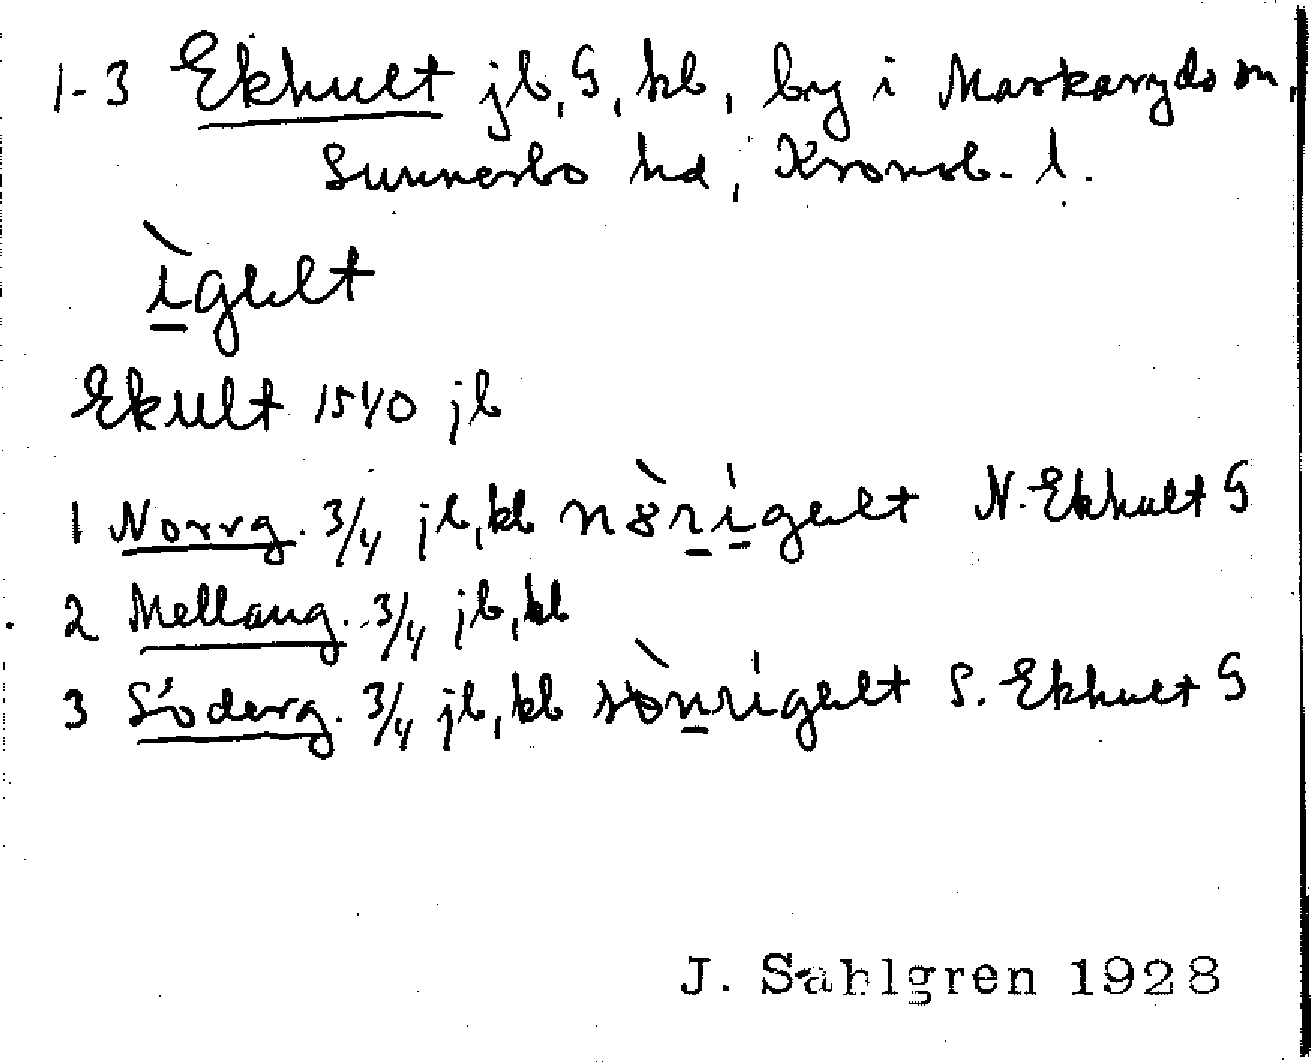 1-3 Ekhult jb, G, kb, by i Markaryds sn,
Sunnerbo hd, Kronob. l.
ìgelt
Ekult 1540 jb
1 Norrg. 3/4 jb, kb N. Ekhult G
2 Mellang. 3/4 jb, kb
3 Söderg. 3/4 jb, kb S. Ekhult G
J. Sahlgren 1928